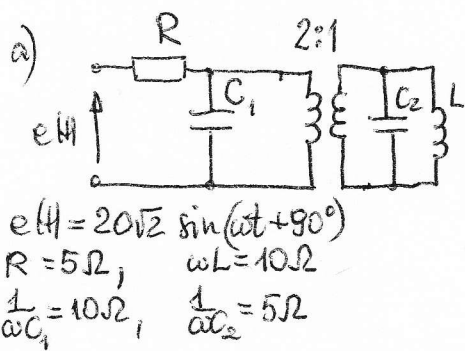 a)
R
2:1
e(t)
C₁
C₂
L
e(t) = 20√2 sin(ωt + 90°)
R = 5Ω, ωL = 10Ω
1/ωC₁ = 10Ω, 1/ωC₂ = 5Ω